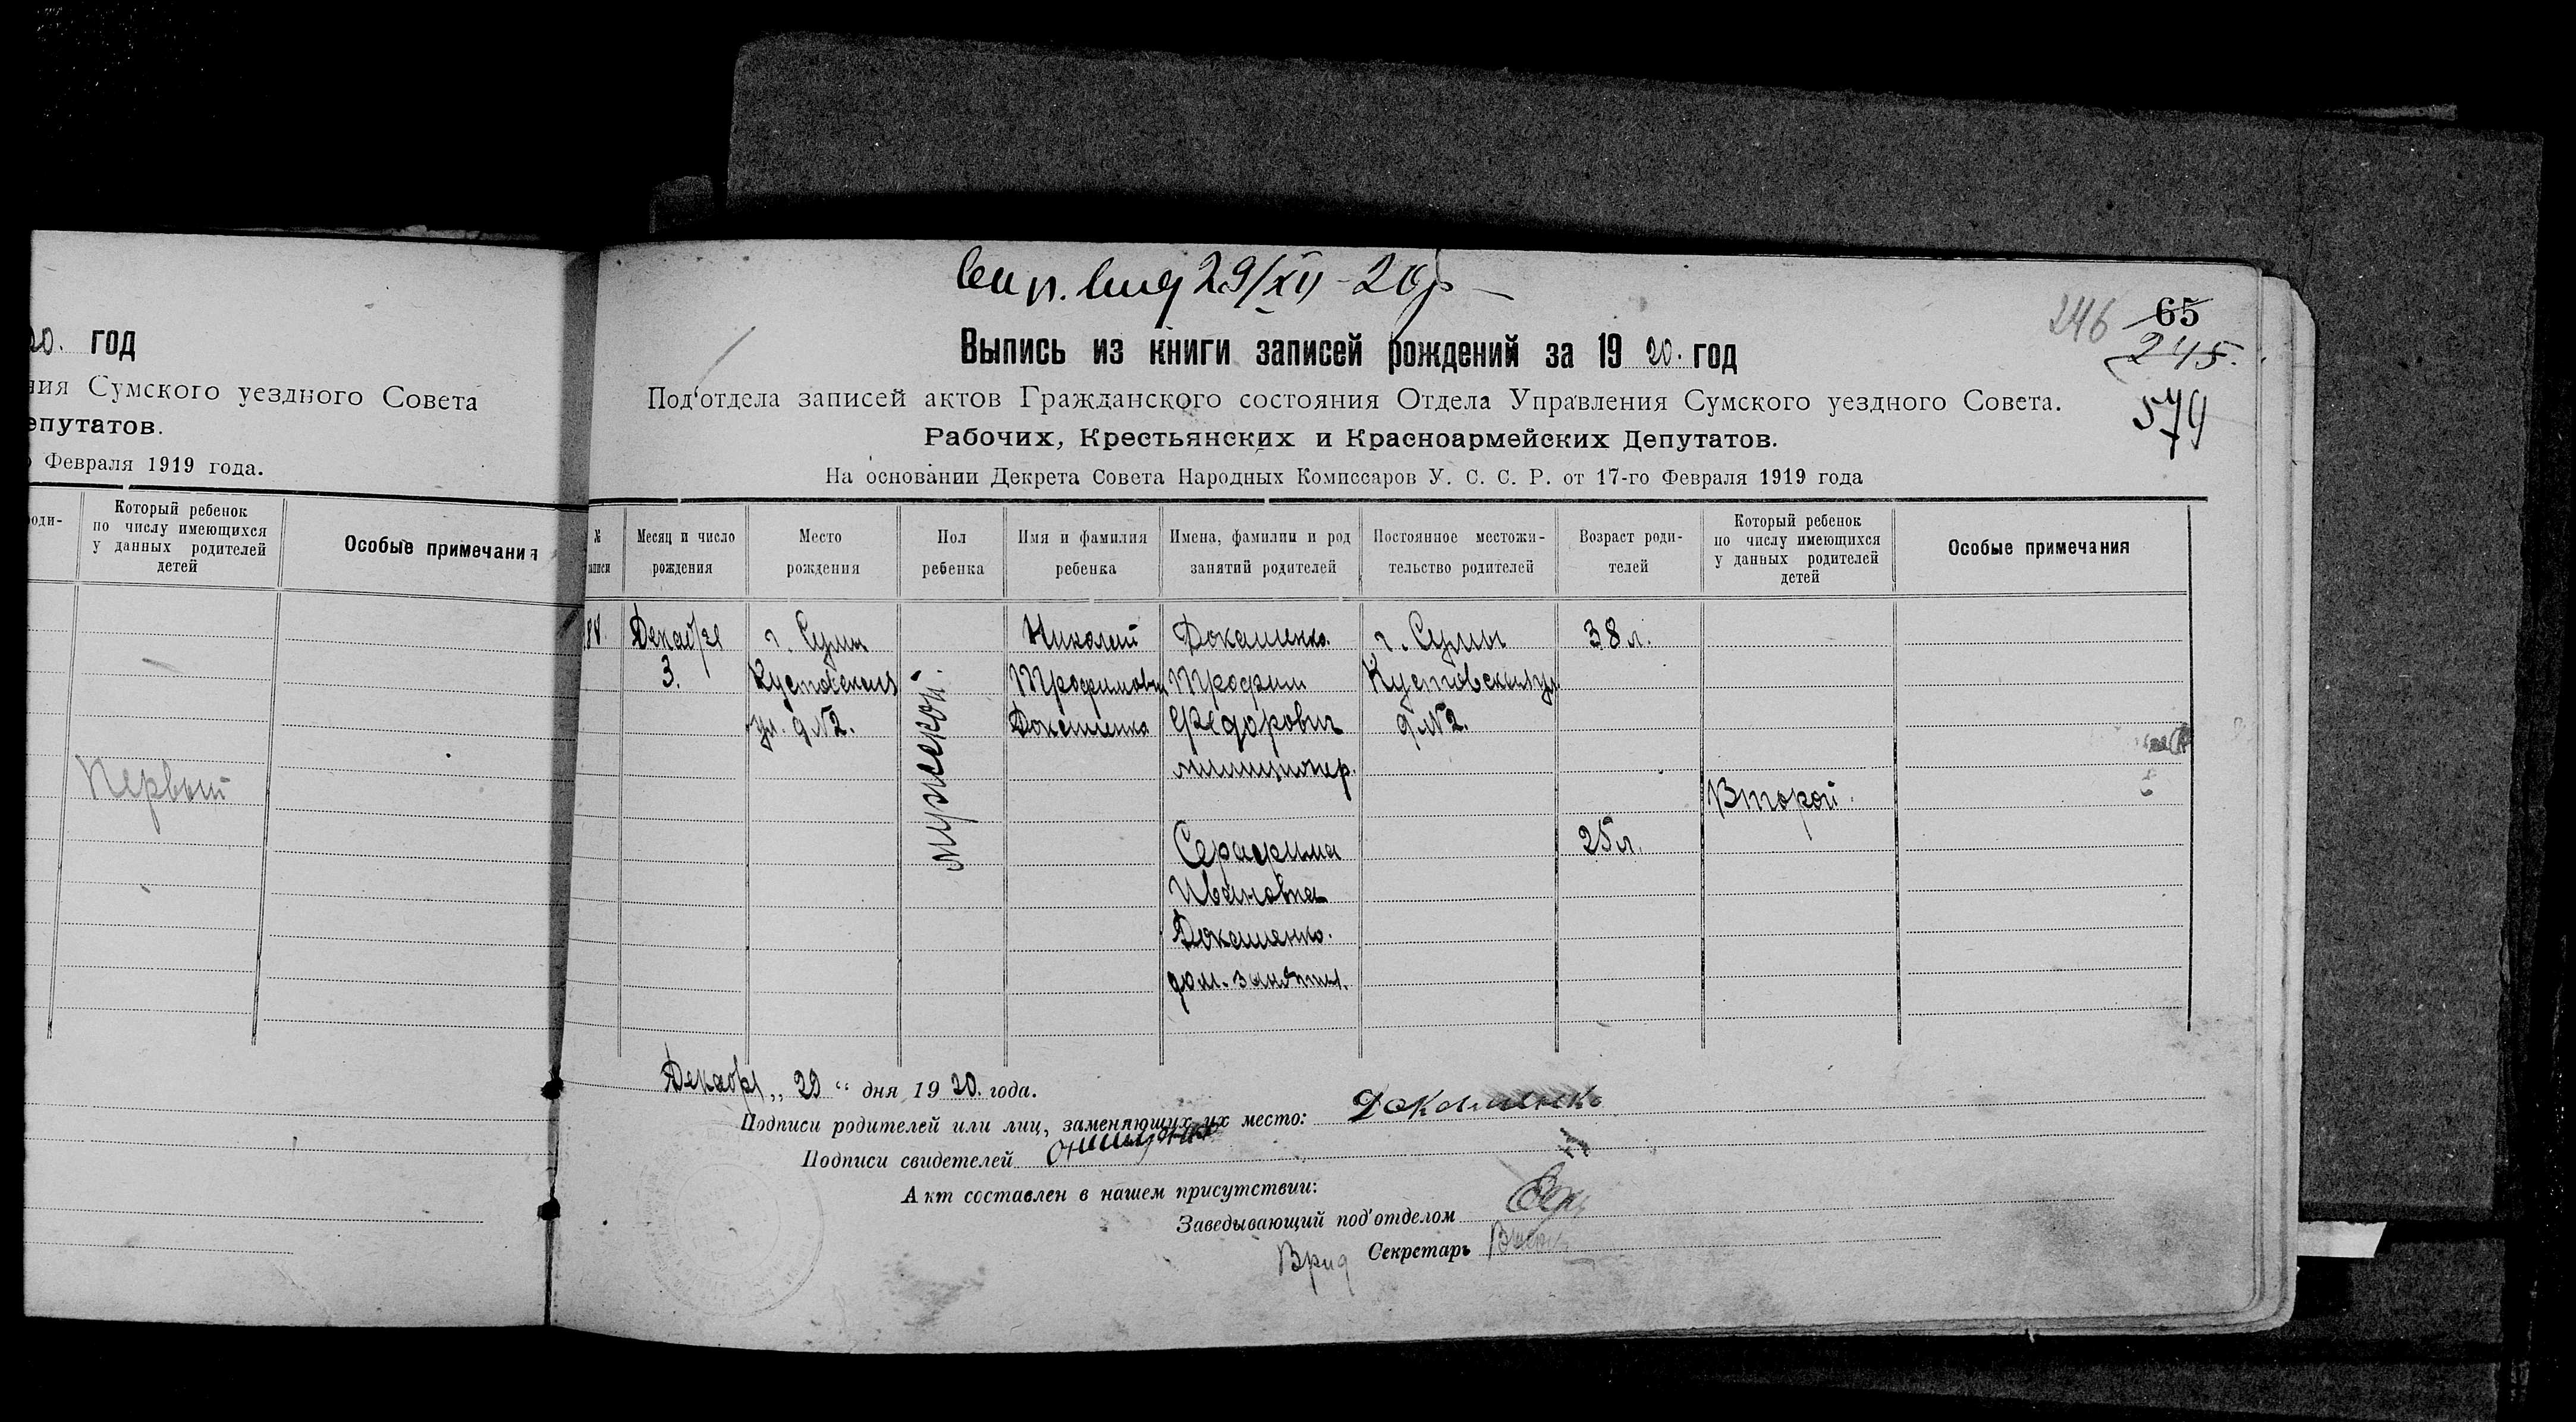 20. год
ния Сумского уездного Совета
епутатов.
Февраля 1919 года.
оди-
Который ребенок
по числу имеющихся
у данных родителей
детей
Особые примечания
Первый
29/XII - 20
246
65
245.
579
Выпись из книги записей рождений за 19 20. год
Под'отдела записей актов Гражданского состояния Отдела Управления Сумского уездного Совета.
Рабочих, Крестьянских и Красноармейских Депутатов.
На основании Декрета Совета Народных Комиссаров У. С. С. Р. от 17-го Февраля 1919 года
№
записи
Месяц и число
рождения
Место
рождения
Пол
ребенка
Имя и фамилия
ребенка
Имена, фамилии и род
занятий родителей
Постоянное местожи-
тельство родителей
Возраст роди-
телей
Который ребенок
по числу имеющихся
у данных родителей
детей
Особые примечания
Декабря
3.
г. Сумы
Кустовская
ул. д. №2.
мужской.
Николай
Трофимович
Докашенко
Докашенко
Трофим
Федорович
милиционер.
Серафима
Ивановна
Докашенко.
дом. занятия.
г. Сумы
Кустовская ул
д. №2.
38 л.
25 л.
Второй.
Декабря „ 29 “ дня 19 20. года.
Подписи родителей или лиц, заменяющих их место: Докашенко
Подписи свидетелей
Акт составлен в нашем присутствии:
Заведывающий под'отделом
Врид Секретарь